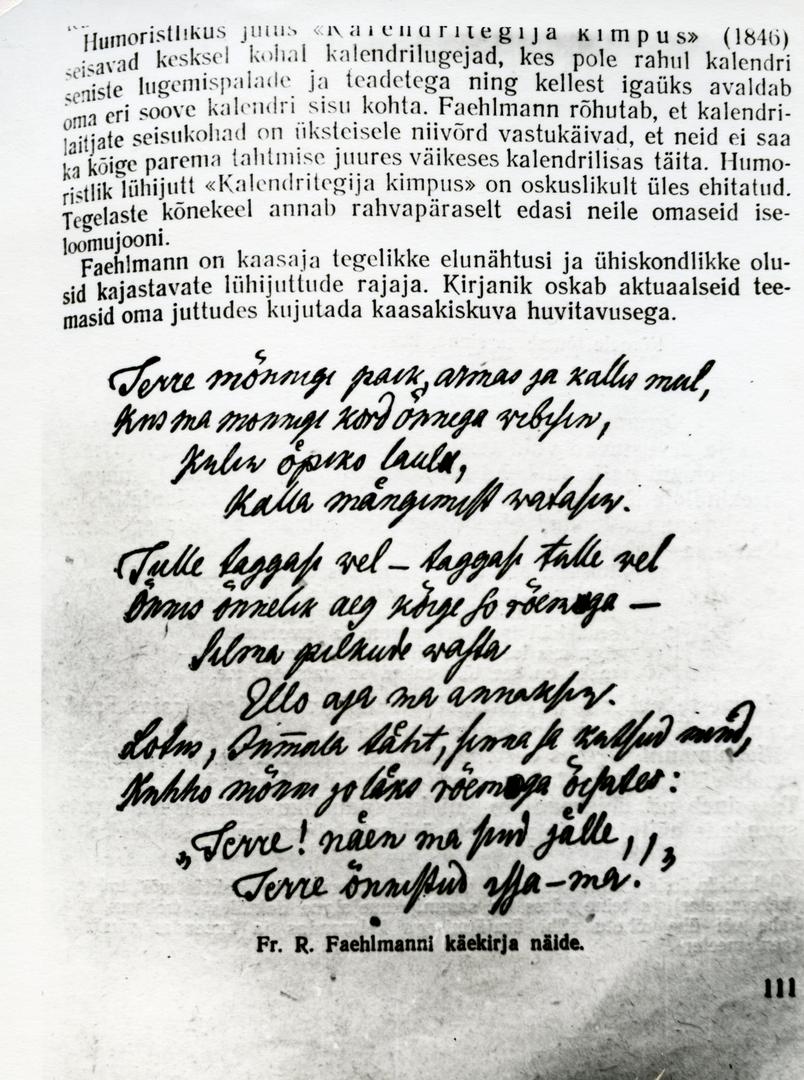 Humoristlikus jutus «Kalendritegija kimpus» (1846)
seisavad kesksel kohal kalendrilugejad, kes pole rahul kalendri
seniste lugemispalade ja teadetega ning kellest igaüks avaldab
oma eri soove kalendri sisu kohta. Faehlmann rõhutab, et kalendri-
laitjate seisukohad on üksteisele niivõrd vastukäivad, et neid ei saa
ka kõige parema tahtmise juures väikeses kalendrilisas täita. Humo-
ristlik lühijutt «Kalendritegija kimpus» on oskuslikult üles ehitatud.
Tegelaste kõnekeel annab rahvapäraselt edasi neile omaseid ise-
loomujooni.
Faehlmann on kaasaja tegelikke elunähtusi ja ühiskondlikke olu-
sid kajastavate lühijuttude rajaja. Kirjanik oskab aktuaalseid tee-
masid oma juttudes kujutada kaasakiskuva huvitavusega.
Terre mönnigi paik, armas ja kallis mul,
Kus ma monnigi kord önnega wibisin,
Kulin öpiko laulu,
Kalla mängimist watasin.
Tulle taggasi wel – taggasi tulle wel
Önnis önnelik aeg köige so röemuga –
Silma pilkude wasta
Ello aja ma annaksin.
Lotus, Jummala täht, sinna ja kutsud mind,
Kuhho mönni jo läks röemuga öisates:
„Terre! näen ma sind jälle,
Terre önnistud issa-ma!"
Fr. R. Faehlmanni käekirja näide.
111